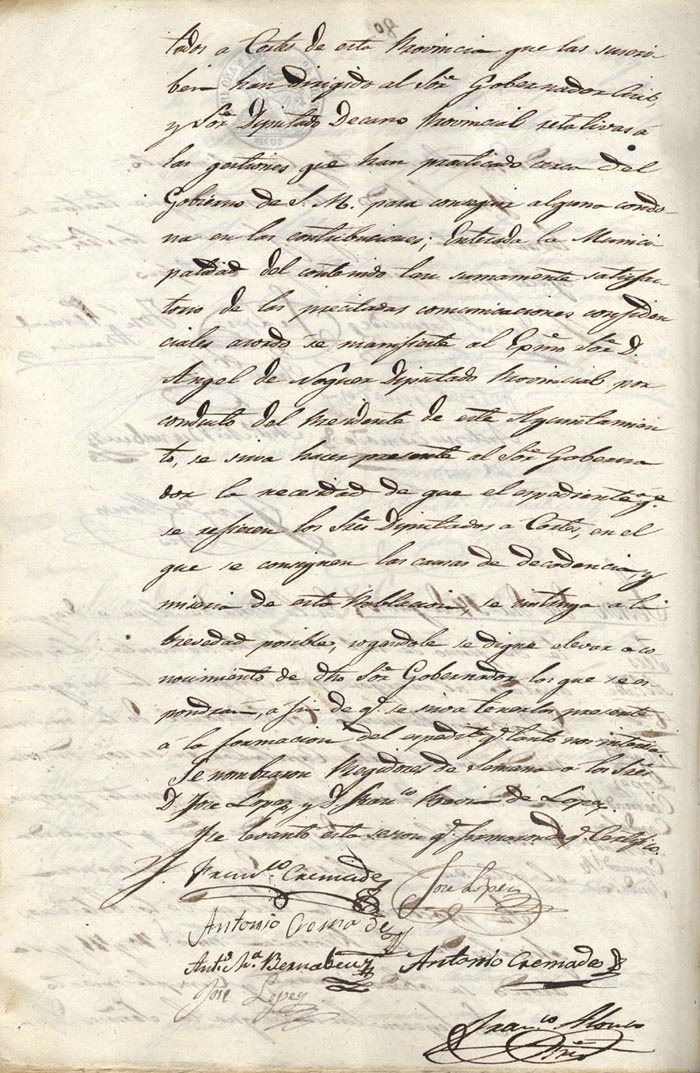 tados a Cortes de esta Provincia que las suscri
ben han dirigido al Sor. Gobernador Civil
y Sor. Diputado Decano Provincial relativas a
las gestiones que han practicado cerca del
Gobierno de S. M. para conseguir alguna condo
na en las contribuciones; Enterada la Munici
palidad del contenido tan sumamente satisfac
torio de las precitadas comunicaciones confiden
ciales acordó se manifieste al Exmo Sor. D.
Angel de Noguer Diputado Provincial, por
conducto del Presidente de este Ayuntamien
to, se sirva hacer presente al Sor. Goberna
dor la necesidad de que el espediente a qe.
se refieren los Sres. Diputados a Cortes, en el
que se consignen las causas de decadencia y
miseria de esta Poblacion, se instruya a la
brevedad posible, rogandole se digne elevar a co
nocimiento de dho Sor. Gobernador los que se es
pondran, a fin de qe. se sirva tenerlas presente
á la formacion del espedte. qe. tanto nos interesa.
Se nombraron Regidores de Semana a los Sres.
D. Jose Lopez y D. Franco. de Lopez.
Y se levantó esta sesion qe. firmaron qe. Certifico.
Franco. Cremades
Jose Lopez
Antonio Cremades
Anto. Ma. Bernabeu
Antonio Cremades
Jose Lopez
Franco. Alonso
Srio.